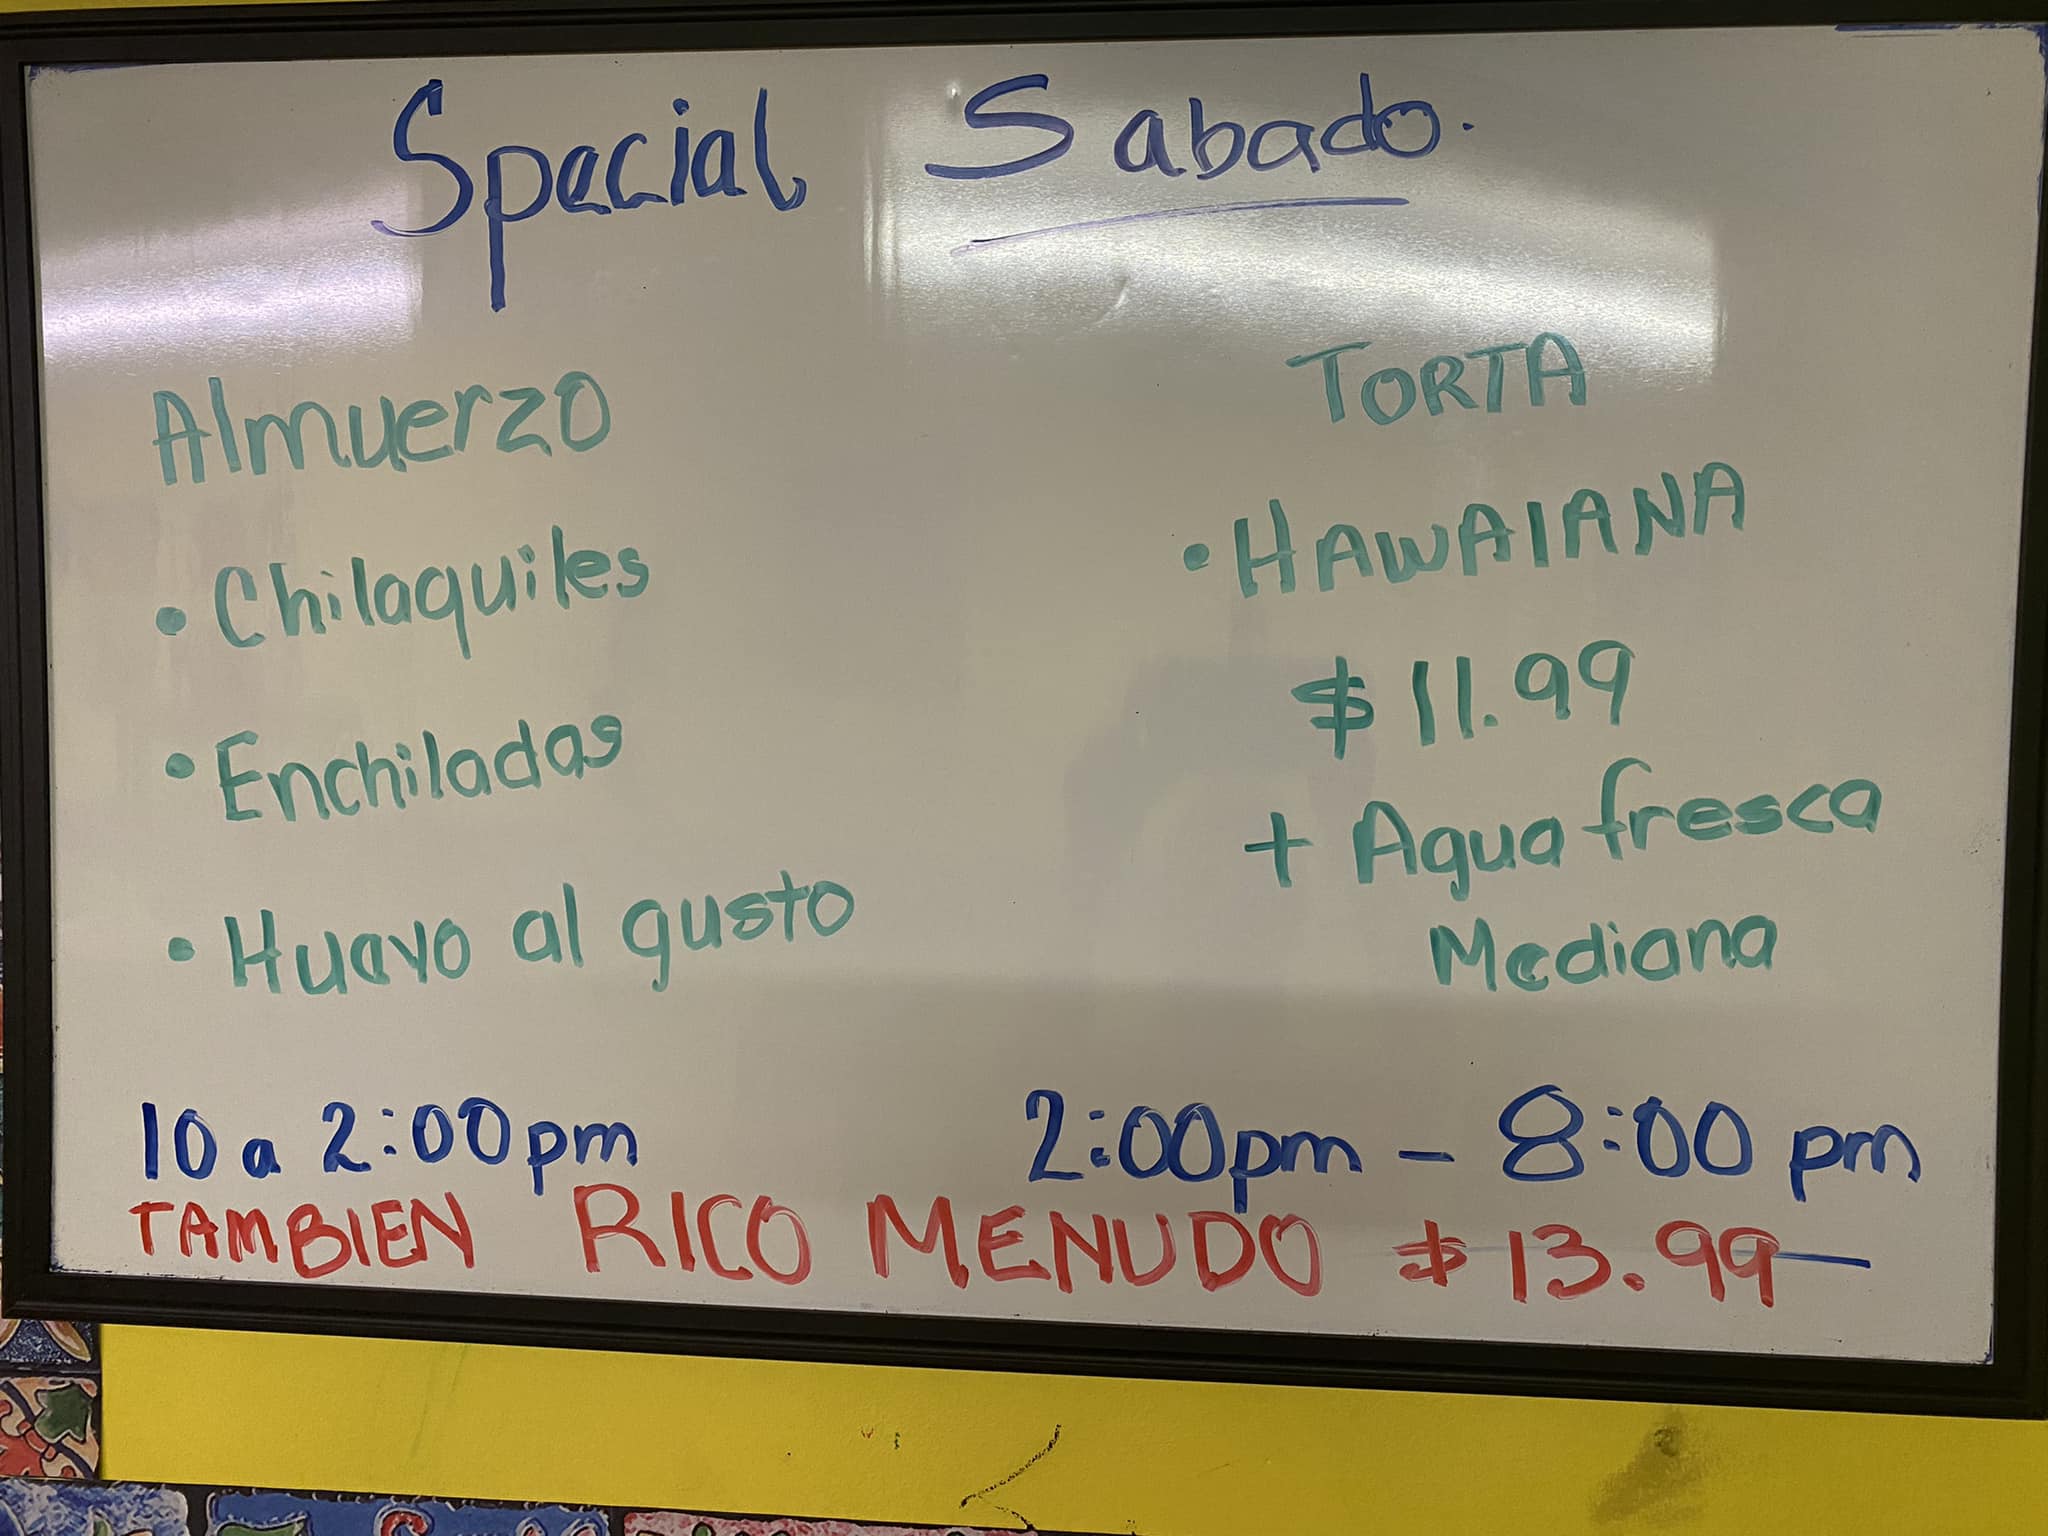 Special Sabado.
Almuerzo
• Chilaquiles
• Enchiladas
• Huevo al gusto
10 a 2:00pm
TORTA
• HAWAIANA
$11.99
+ Agua fresca
Mediana
2:00pm - 8:00 pm
TAMBIEN RICO MENUDO $13.99